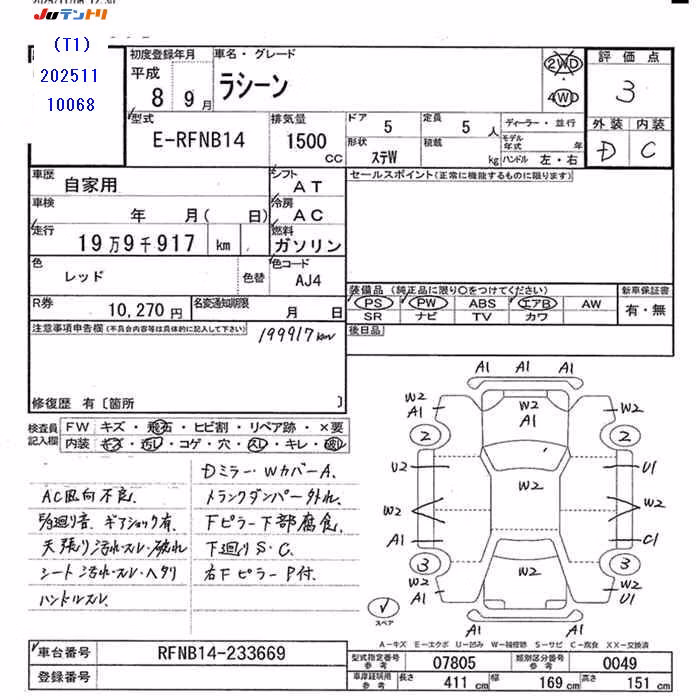 JUテントリ
(T1)
202511
10068
初度登録年月
平成
8 9月
車名・グレード
ラシーン
2WD
4WD
評価点
3
外装 内装
D C
型式
E-RFNB14
排気量
1500
CC
ドア 5
定員 5 人
ディーラー・並行
形状 ステW
積載 kg
モデル年式 年
ハンドル 左・右
車歴
自家用
シフト
AT
セールスポイント(正常に機能するものに限ります)
車検
年 月( 日)
冷房
AC
走行
19万9千917 km
燃料
ガソリン
色
レッド
色替
色コード
AJ4
装備品 (純正品に限り○をつけてください)
新車保証書
PS PW ABS エアB AW
有・無
SR ナビ TV カワ
R券
10,270円
名変通知期限
月 日
後日品
注意事項申告欄(不具合内容等は具体的に記入して下さい)
199917km
修復歴 有〔箇所 〕
検査員記入欄
FW キズ・飛石・ヒビ割・リペア跡・×要
内装 キズ・汚レ・コゲ・穴・スレ・キレ・破レ
Dミラー・WカバーA.
AC風向不良.
トランクダンパー外れ.
駆廻り音.ギアショック有.
Fピラー下部腐食.
天張り汚れ・スレ・破れ
下廻りS・C.
シート汚れ・スレ・ヘタリ
右Fピラー P付.
ハンドルスレ.
A1 A1 A1
W2 A1
W2 A1
W2 A1
2 2
U2 W2 U1
W2 W2
W2
A1 C1
3 3
W2 A1
W2
W2 U1
A1 A1
スペア
A-キズ E-エクボ U-凹み W-補修跡 S-サビ C-腐食 XX-交換済
車台番号
RFNB14-233669
登録番号
型式指定番号 参考
07805
類別区分番号 参考
0049
車庫証明用 参考
長さ 411 cm
幅 169 cm
高さ 151 cm